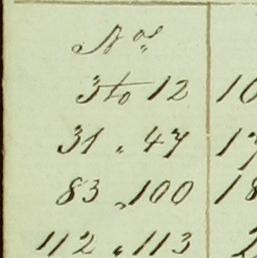 Nos
3 to 12 10
31 " 47 17
83 " 100 18
112 " 113 2